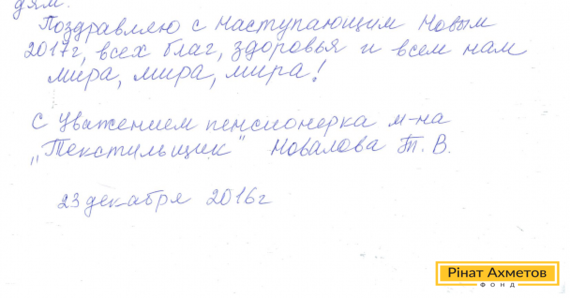 дям.
Поздравляю с наступающим Новым
2017г, всех благ, здоровья и всем нам
мира, мира, мира!
С уважением пенсионерка м-на
„Текстильщик" Новалова Т. В.
23 декабря 2016г
Рінат Ахметов
ФОНД